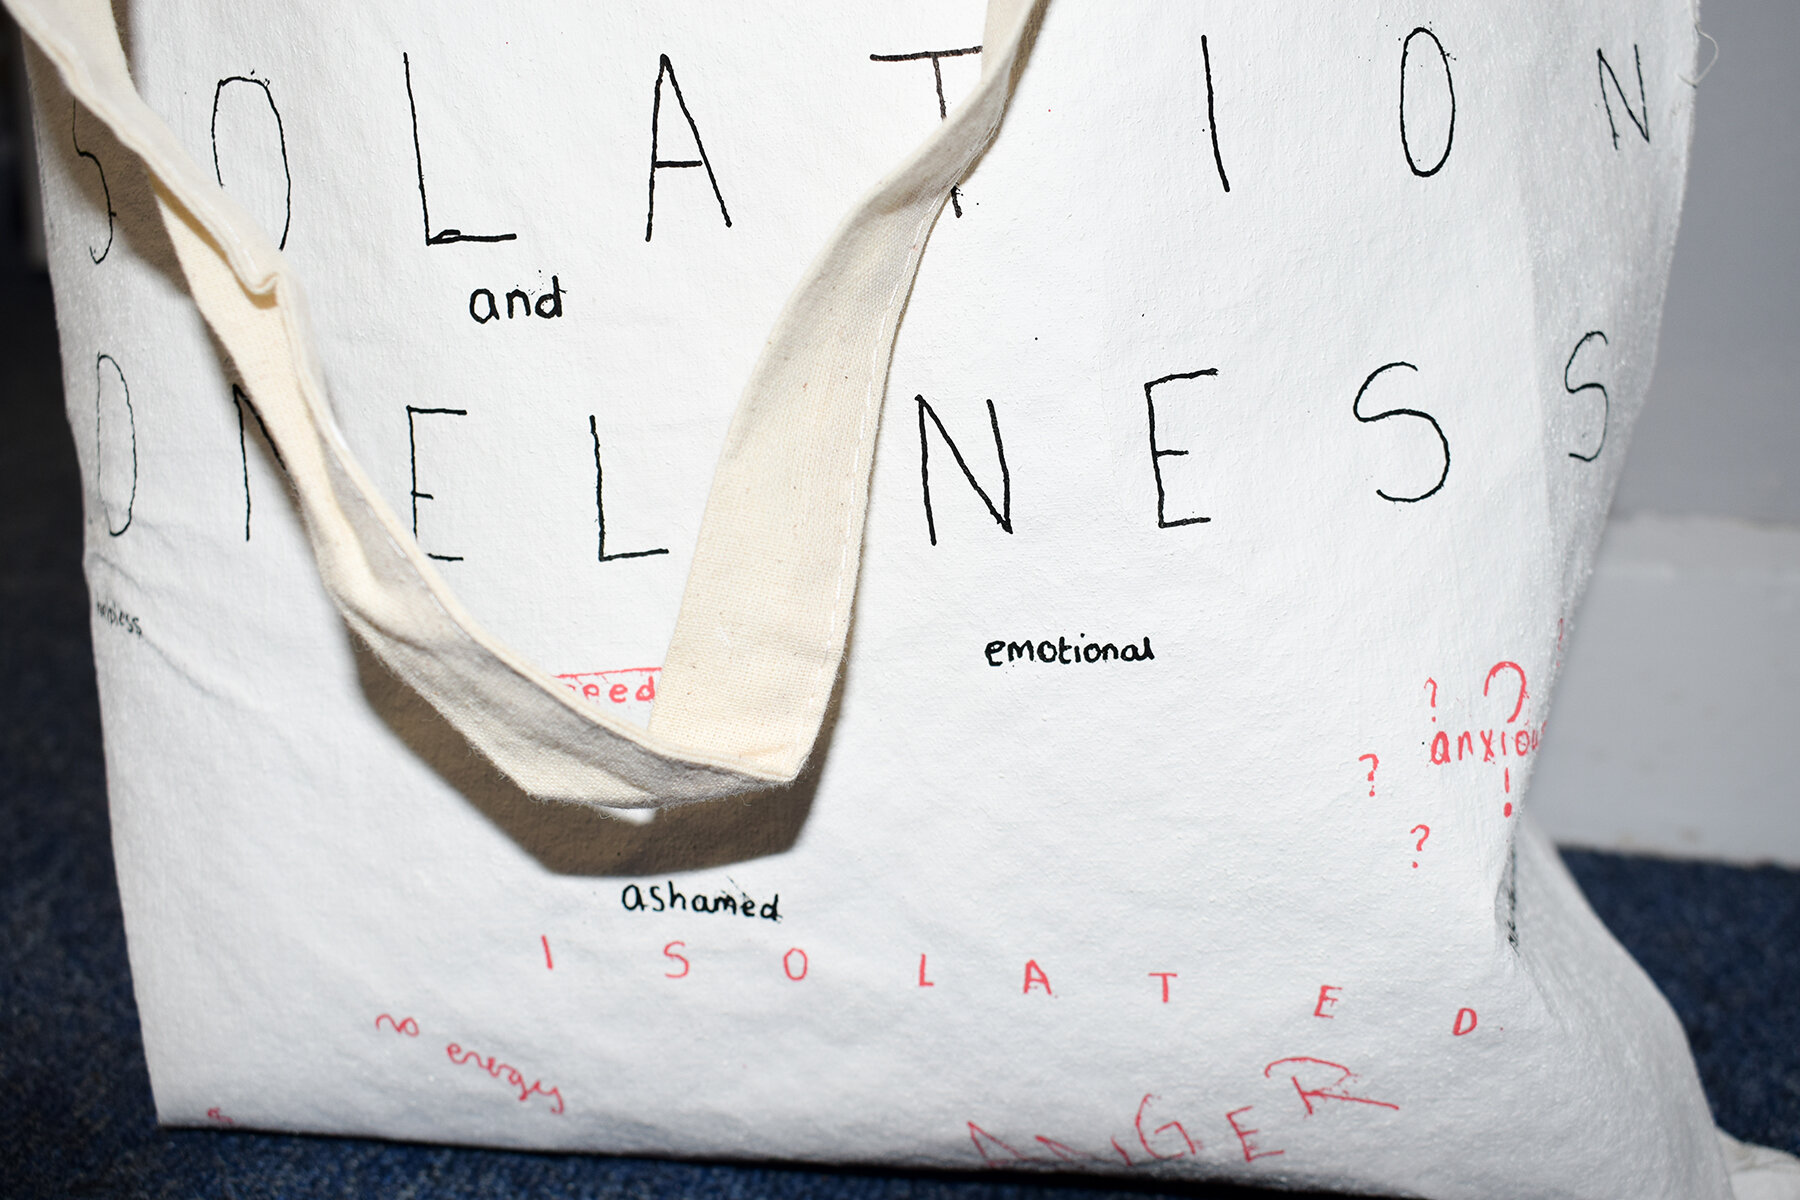 SOLATION
and
ONELINESS
emotional
? ?
anxious
?
!
?
ashamed
ISOLATED
no energy
ANGER